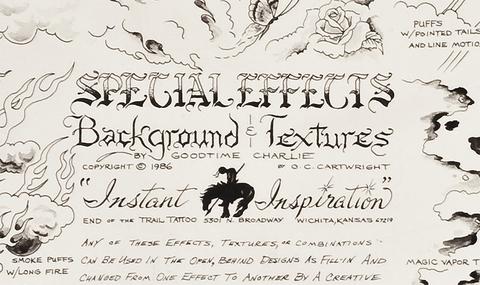 PUFFS
W/POINTED TAILS
AND LINE MOTIO
SPECIAL EFFECTS
Background & Textures
BY GOODTIME CHARLIE
COPYRIGHT © 1986 BY O.C. CARTWRIGHT
"Instant Inspiration"
END OF THE TRAIL TATTOO 5301 N. BROADWAY WICHITA, KANSAS 67219
SMOKE PUFFS
W/LONG FIRE
ANY OF THESE EFFECTS, TEXTURES, OR COMBINATIONS
CAN BE USED IN THE OPEN, BEHIND DESIGNS AS FILL-IN AND
CHANGED FROM ONE EFFECT TO ANOTHER BY A CREATIVE
MAGIC VAPOR T